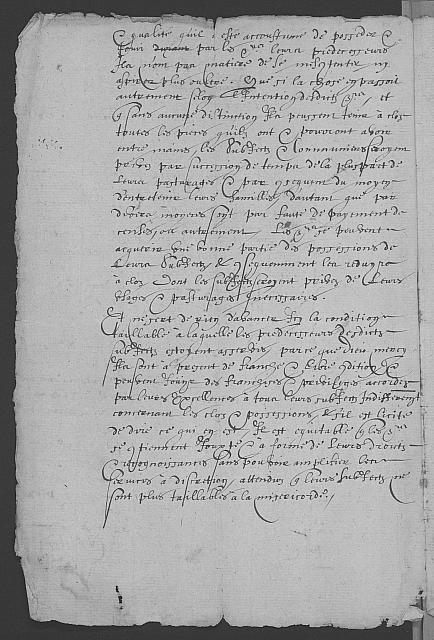 & qualité quil este accoustume de posseder &
Jouir durant par les srs leurs predecesseurs
Ilz nont pas matiere de se mescontenter ny
aspirer plus oultre. Que si la chose passoit
autrement selon l'Intention desdicts srs, et
sans aucune distinction Ilz peussent tenir a clos
toutes les pieces quilz ont & pourront avoir
entre mains, les Subjects & Communiers seroyent
privez par succession de temps de la pluspart de
leurs pasturages & par consequent du moyen
dentretenir leurs familles dautant que par
divers moyens soit par faulte de payement de
censes, ou autrement. Les srs se peuvent
acquerir une bonne partie des possessions de
leurs Subjects, & consequemment les reduyre
a clos Dont les subjects seroyent privez de leurs
usages & pasturages necessaires.
Et ne sert de rien davancer Icy la condition
taillable a laquelle les predecesseurs desdicts
subjects estoyent asservis, parce que Dieu mercy
Ilz sont a present de franche & libre condition &
peuvent Jouyr des franchises & privileges accordez
par leurs Excellences a tous leurs subjects Indifferement
concernant les clos & possessions, & sil est licite
de dire ce qui en est, Il est equitable que les srs
se contiennent Jouxte & a forme de leurs droicts
& recognoissances sans pouvoir amplifier les
services a discretion, attendu que leurs subjects ne
sont plus taillables a la misericorde,